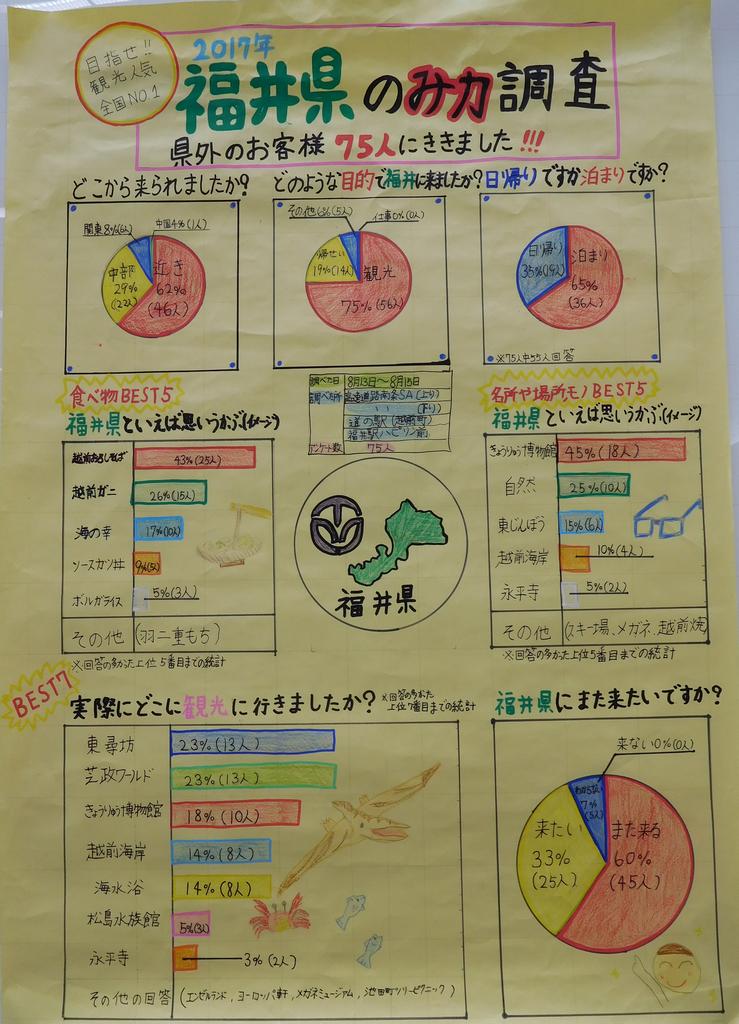 目指せ!!
観光人気
全国NO.1
2017年
福井県のみ力調査
県外のお客様 75人にききました!!!
どこから来られましたか?
関東8%(6人)
中国4%(1人)
中部
29%
(22人)
近き
62%
(46人)
どのような目的で福井に来ましたか?
その他6%(5人)
仕事0%(0人)
帰せい
19%(14人)
観光
75%(56人)
日帰りですか泊まりですか?
日帰り
35%(19人)
泊まり
65%
(36人)
※75人中55人回答
調べた日 8月13日〜8月15日
調べた場所 高速道路南条SA(上り)
〃 〃 (下り)
道の駅(越前町)
福井駅ハピリン前
アンケート数 75人
食べ物BEST5
福井県といえば思いうかぶ(イメージ)
越前おろしそば 43%(25人)
越前ガニ 26%(15人)
海の幸 17%(10人)
ソースカツ丼 9%(5人)
ボルガライス 5%(3人)
その他 (羽二重もち)
※回答の多かった上位5番目までの統計
福井県
名所や場所モノBEST5
福井県といえば思いうかぶ(イメージ)
きょうりゅう博物館 45%(18人)
自然 25%(10人)
東じんぼう 15%(6人)
越前海岸 10%(4人)
永平寺 5%(2人)
その他 (スキー場、メガネ、越前焼)
※回答の多かった上位5番目までの統計
BEST7
実際にどこに観光に行きましたか?
※回答の多かった
上位7番目までの統計
東尋坊 23%(13人)
芝政ワールド 23%(13人)
きょうりゅう博物館 18%(10人)
越前海岸 14%(8人)
海水浴 14%(8人)
松島水族館 5%(3人)
永平寺 3%(2人)
その他の回答 (エンゼルランド、ヨーロッパ軒、メガネミュージアム、池田町ツリーピクニック)
福井県にまた来たいですか?
来ない0%(0人)
わからない
7%
(5人)
来たい
33%
(25人)
また来る
60%
(45人)